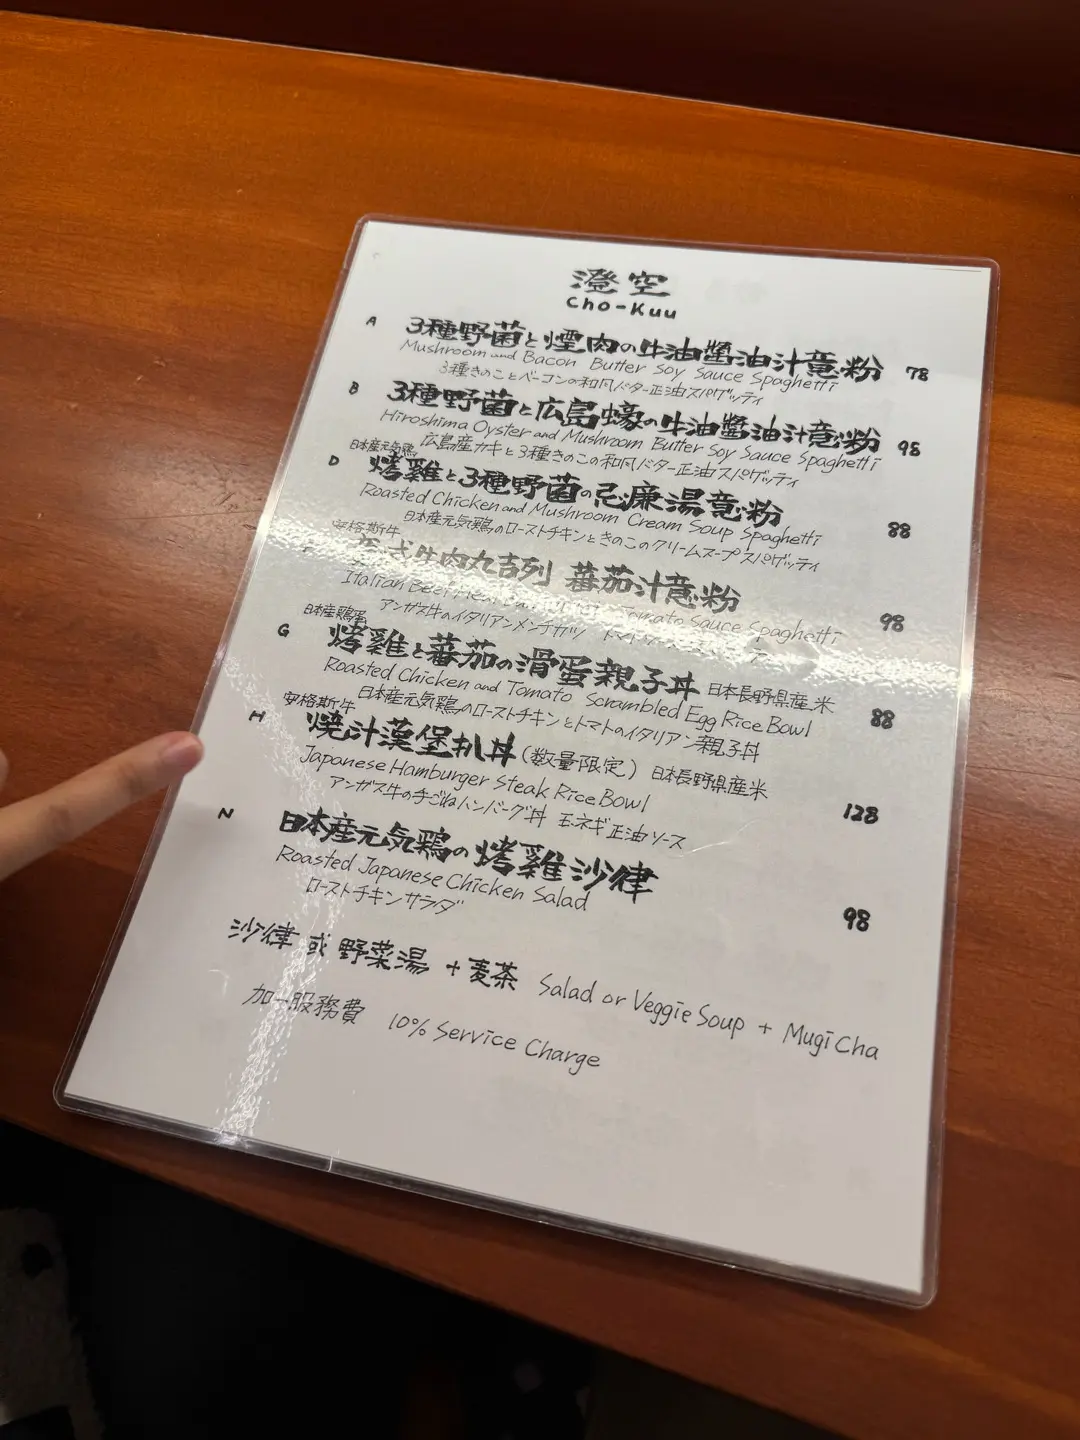 澄空
Cho-Kuu
A 3種野菌と煙肉の牛油醬油汁意粉 78
Mushroom and Bacon Butter Soy Sauce Spaghetti
3種きのことベーコンの和風バター正油スパゲッティ
B 3種野菌と広島蠔の牛油醬油汁意粉 98
Hiroshima Oyster and Mushroom Butter Soy Sauce Spaghetti
広島産カキと3種きのこの和風バター正油スパゲッティ
日本産元気鶏
D 烤雞と3種野菌の忌廉湯意粉 88
Roasted Chicken and Mushroom Cream Soup Spaghetti
日本産元気鶏のローストチキンときのこのクリームスープスパゲッティ
安格斯牛
式牛肉丸吉列 蕃茄汁意粉 98
Italian Beef Tomato Sauce Spaghetti
アンガス牛のイタリアンメンチカツ
日本産鶏蛋
G 烤雞と蕃茄の滑蛋親子丼 日本長野県産米 88
Roasted Chicken and Tomato Scrambled Egg Rice Bowl
日本産元気鶏のローストチキンとトマトのイタリアン親子丼
安格斯牛
H 燒汁漢堡扒丼(数量限定) 日本長野県産米 128
Japanese Hamburger Steak Rice Bowl
アンガス牛の手ごねハンバーグ丼 玉ネギ正油ソース
N 日本産元気鶏の烤雞沙律 98
Roasted Japanese Chicken Salad
ローストチキンサラダ
沙律 或 野菜湯 +麦茶 Salad or Veggie Soup + Mugi Cha
加一服務費 10% Service Charge